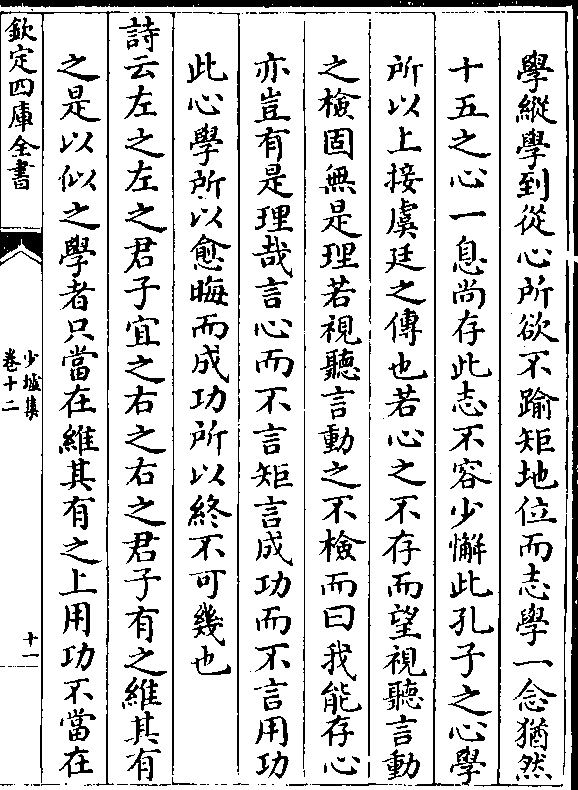 學縱學到從心所欲不踰矩地位而志學一念猶然
十五之心一息尚存此志不容少懈此孔子之心學
所以上接虞廷之傳也若心之不存而望視聽言動
之檢固無是理若視聽言動之不檢而曰我能存心
亦豈有是理哉言心而不言矩言成功而不言用功
此心學所以愈晦而成功所以終不可幾也
詩云左之左之君子宜之右之右之君子有之維其有
之是以似之學者只當在維其有之上用功不當在
欽定四庫全書
少墟集
卷十二
十一